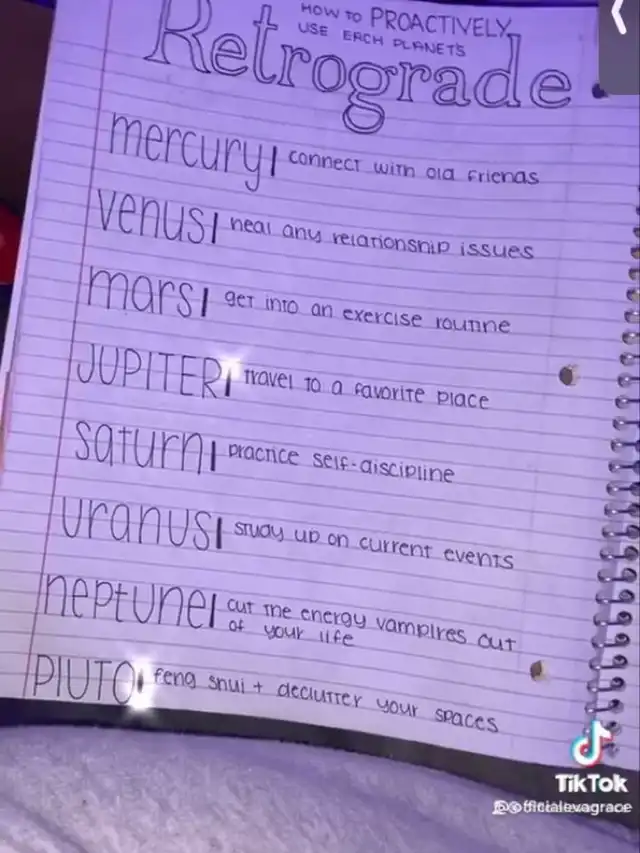 HOW TO PROACTIVELY
USE EACH PLANET'S
Retrograde
mercury| connect with old friends
venus| heal any relationship issues
mars| get into an exercise routine
JUPITER| travel to a favorite place
saturn| practice self-discipline
uranus| study up on current events
neptune| cut the energy vampires out
of your life
PlUTO| feng shui + declutter your spaces
TikTok
@officialevagrace